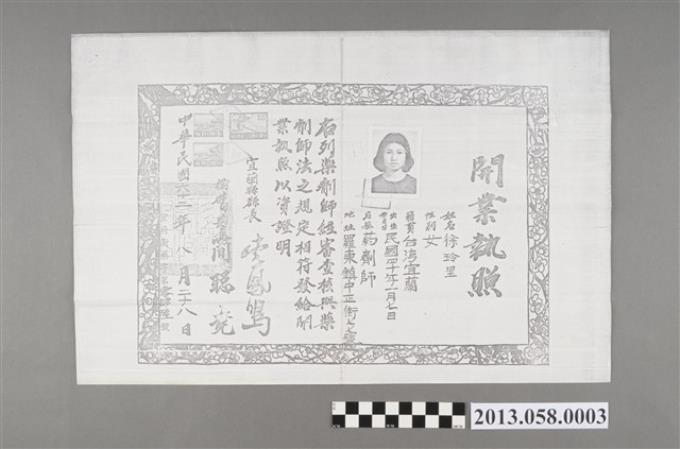 開業執照
姓名 徐玲里
性別 女
籍貫 台灣宜蘭
出生年月日 民國四十年一月七日
資格 藥劑師
地址 羅東鎮中正街
右列藥劑師經審查核與藥
劑師法之規定相符發給開
業執照以資證明
宜蘭縣縣長 李鳳鳴
中華民國六十二年八月二十八日
2013.058.0003